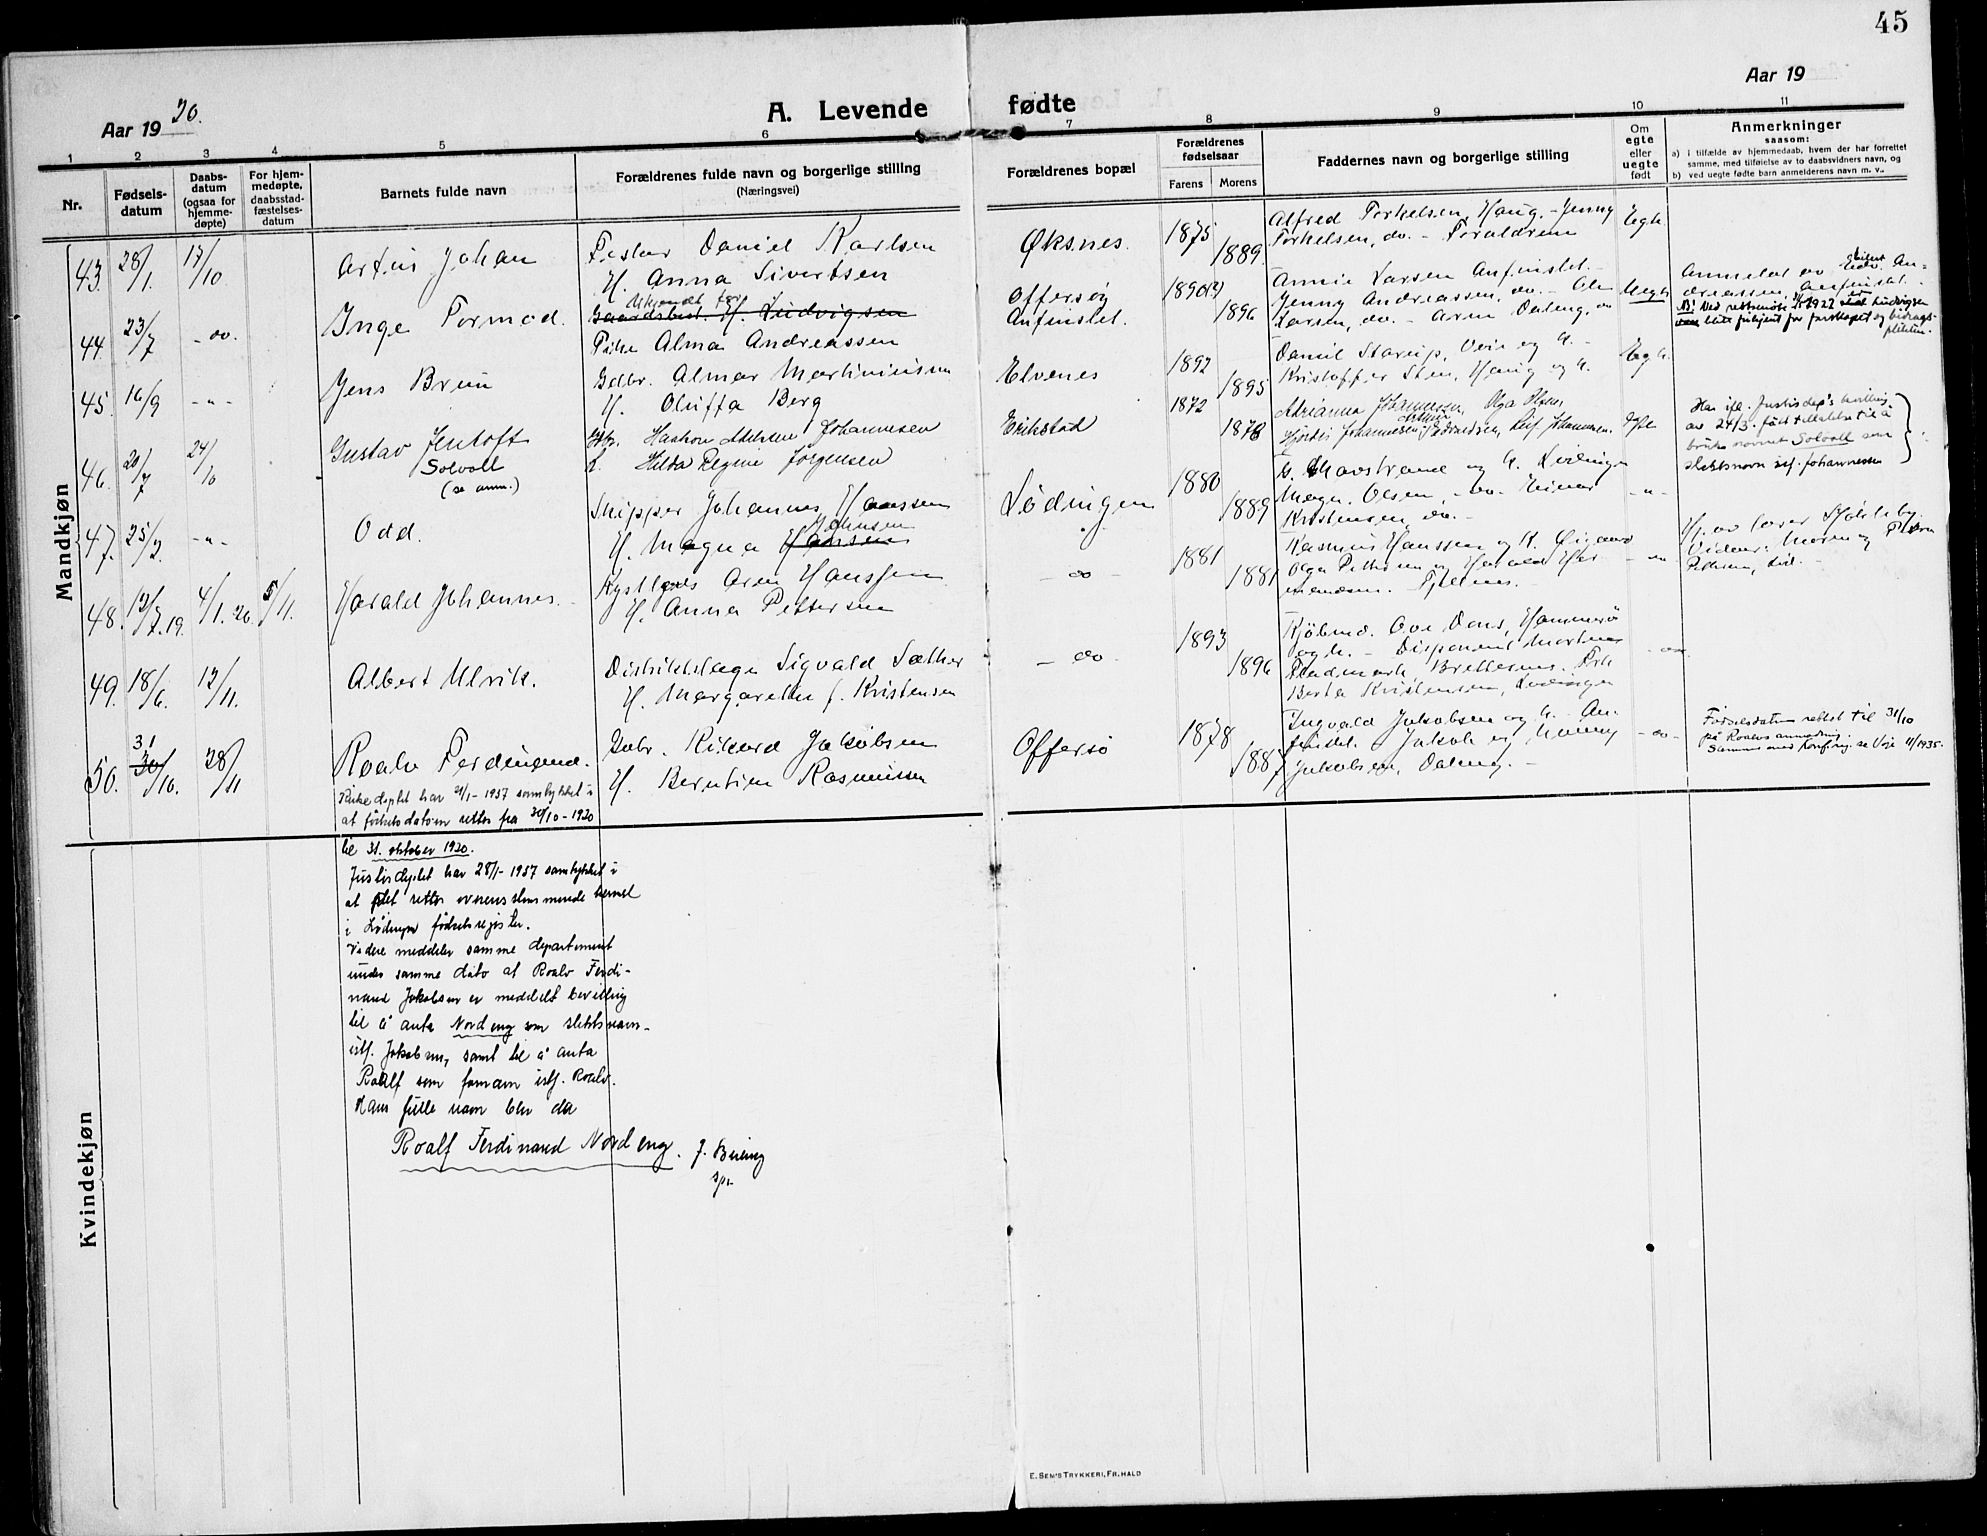 45
Aar 1920.
A. Levende
fødte
Aar 19
1 2 3 4 5 6 7 8 9 10 11
Nr.
Fødsels-
datum
Daabs-
datum
(ogsaa for
hjemme-
døpte)
For hjem-
medøpte,
daabsstad-
fæstelses-
datum
Barnets fulde navn
Forældrenes fulde navn og borgerlige stilling
(Næringsvei)
Forældrenes bopæl
Forældrenes
fødselsaar
Farens Morens
Faddernes navn og borgerlige stilling
Om
egte
eller
uegte
født
Anmerkninger
saasom:
a) i tilfælde av hjemmedaab, hvem der har forrettet
samme, med tilføielse av to daabsvidners navn, og
b) ved uegte fødte barn anmelderens navn m. v..
Mandkjøn
43. 28/1. 17/10. Johan
Daniel Karlsen
H. Anna Sivertsen
Øksnes. 1875 1889.
Alfred Torkelsen, Haug. - Jenny
Torkelsen, do. - Forældrene
Egte
44. 23/7 - do. Inge Tormod.
Gaardsbest. H. Ludvigsen
Pike Alma Andreassen
Offersøy
Anfinslet. 1890(?) 1896
Annie Larsen Anfinslet. -
Jenny Andreassen, do. - Ole
Larsen, do. - Arne
Uegte
Anmeldt av Edv. An-
dreassen, Anfinslet.
45. 16/9 - " - Jens Brun
Gdbr. Almar Martinussen
H. Oluffa Berg
Elvenes 1892 1895
Daniel Starup, Voie og h. -
Kristoffer Sten, Haug og h.
Egte.
46. 20/7 24/10 Gustav Jentoft
Solvoll
(se anm.)
Gbr. Haakon Johannesen
H. Hilda Regine Jørgensen
Erikstad 1872 1878
Adrianna Johannessen, Olga Olsen,
Hjørdis Johannesen, Edvardsen, Leif Johannesen.
Egte
Har ifl. Justisdep's bevilling
av 24/3. fått tillatelse til å
bruke navnet Solvoll som
slektsnavn istf. Johannessen
47. 25/2. - " - Odd.
Skipper Johannes Hanssen
Johnsen
H. Magna Hansen
Lødingen 1880 1889
Magn. Olsen, - do. - Einar
Kristensen, do. -
- " -
48. 12/7.19. 4/1. 20. 5/11. Harald Johannes.
Aren Hanssen
H. Anna Pettersen
- do - 1881 1881
Rasmus Hanssen og K.
Olga Pettersen og Harald Her-
mansen. Fjelnes.
- " -
49. 18/6. 12/11. Albert Ulrik.
Distriktslæge Sigvald Sæther
H. Margarethe f. Kristensen
- do - 1893 1896
Kjøbmd. Ove Dons, Hammerø
og h. - Disponent Mortenes
Brettesnes. Frk
Berta Kristensen, Lødingen
50. 31 30/10. 28/11 Roalv Ferdinand.
Gdbr. Rikard Jakobsen
H. Berntine Rasmussen
Offersø 1878 1887
Ingvald Jakobsen og h. An-
finslet. Jakob og
Jakobsen,
- do -
Fødselsdatum rettet til 31/10
på Roalvs anmodning.
Kirkedeptet har 21/1- 1957 samtykket i
at fødselsdatoen rettes fra 30/10 - 1920
til 31. oktober 1920.
Justisdeptet har 28/1- 1957 samtykket i
at det rettes overensstemmende hermed
i Lødingen fødselsregister.
Videre meddeler samme departement
under samme dato at Roalv Ferdi-
nand Jakobsen er meddelt bevilling
til å anta Nordeng som slektsnavn
istf. Jakobsen, samt til å anta
Roalf som fornavn istf. Roalv.
Hans fulle navn blir da
Roalf Ferdinand Nordeng.
Kvindekjøn
E. Sem's Trykkeri, Fr.hald